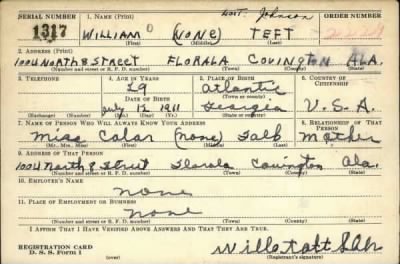 SERIAL NUMBER 1. NAME (Print) ORDER NUMBER
1317 WILLIAM (NONE) TEFT
(First) (Middle) (Last)
2. ADDRESS (Print)
1004 NORTH 8 STREET FLORALA COVINGTON ALA.
(Number and street or R. F. D. number) (Town) (County) (State)
3. TELEPHONE 4. AGE IN YEARS 5. PLACE OF BIRTH 6. COUNTRY OF CITIZENSHIP
29 Atlantic
DATE OF BIRTH (Town or county)
July 12 1911 Georgia U.S.A.
(Exchange) (Number) (Mo.) (Day) (Yr.) (State or country)
7. NAME OF PERSON WHO WILL ALWAYS KNOW YOUR ADDRESS 8. RELATIONSHIP OF THAT PERSON
Miss (none) Mother
(Mr., Mrs., Miss) (First) (Middle) (Last)
9. ADDRESS OF THAT PERSON
1004 North 8 Street Florala Covington Ala.
(Number and street or R. F. D. number) (Town) (County) (State)
10. EMPLOYER'S NAME
none
11. PLACE OF EMPLOYMENT OR BUSINESS
none
(Number and street or R. F. D. number) (Town) (County) (State)
I AFFIRM THAT I HAVE VERIFIED ABOVE ANSWERS AND THAT THEY ARE TRUE.
REGISTRATION CARD
D. S. S. Form 1 (Registrant's signature)